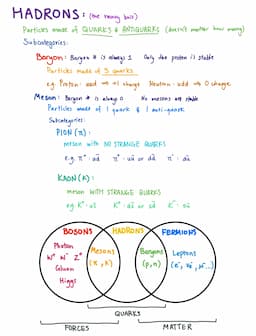 HADRONS: (the heavy bois)
Particles made of QUARKS & ANTIQUARKS (doesn't matter how many)
Subcategories:
Baryon: Baryon # is always 1 Only the proton is stable
Particles made of 3 quarks
e.g. Proton: uud ⇒ +1 charge Neutron: udd ⇒ 0 charge
Meson: Baryon # is always 0 No mesons are stable
Particles made of 1 quark & 1 anti-quark
Subcategories:
PION (π):
meson with NO STRANGE QUARKS
e.g.
KAON (K):
meson WITH STRANGE QUARKS
e.g.
BOSONS HADRONS FERMIONS
Photon
W⁺ W⁻ Z⁰
Gluon
Higgs
Mesons
(π, K)
Baryons
(p, n)
Leptons
QUARKS
FORCES MATTER